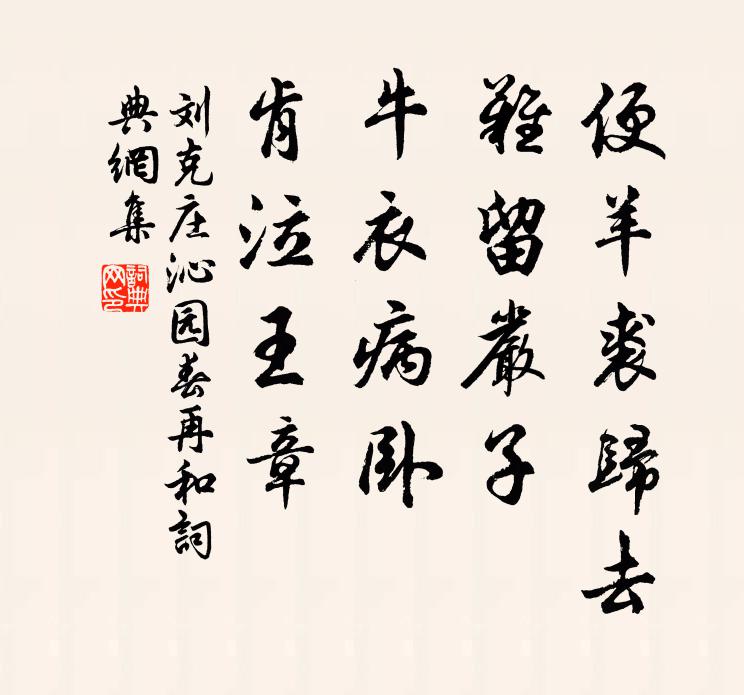 便羊裘歸去
難留嚴子
牛衣病臥
肯泣王章
刘克庄沁园春再和詞
典網集
詞典網印